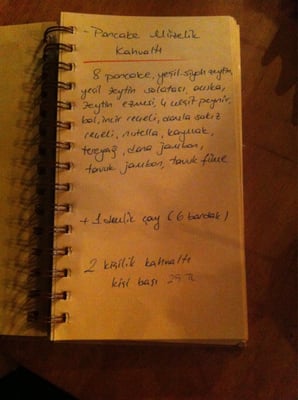 - Pancake Müzelik
Kahvaltı
8 pancake, yeşil-siyah zeytin,
yeşil zeytin salatası, acuka,
zeytin ezmesi, 4 çeşit peynir,
bal, incir reçeli, damla sakız
reçeli, nutella, kaymak,
tereyağ, dana jambon,
tavuk jambon, tavuk füme
+ 1 demlik çay (6 bardak)
2 kişilik kahvaltı
kişi başı 29 TL